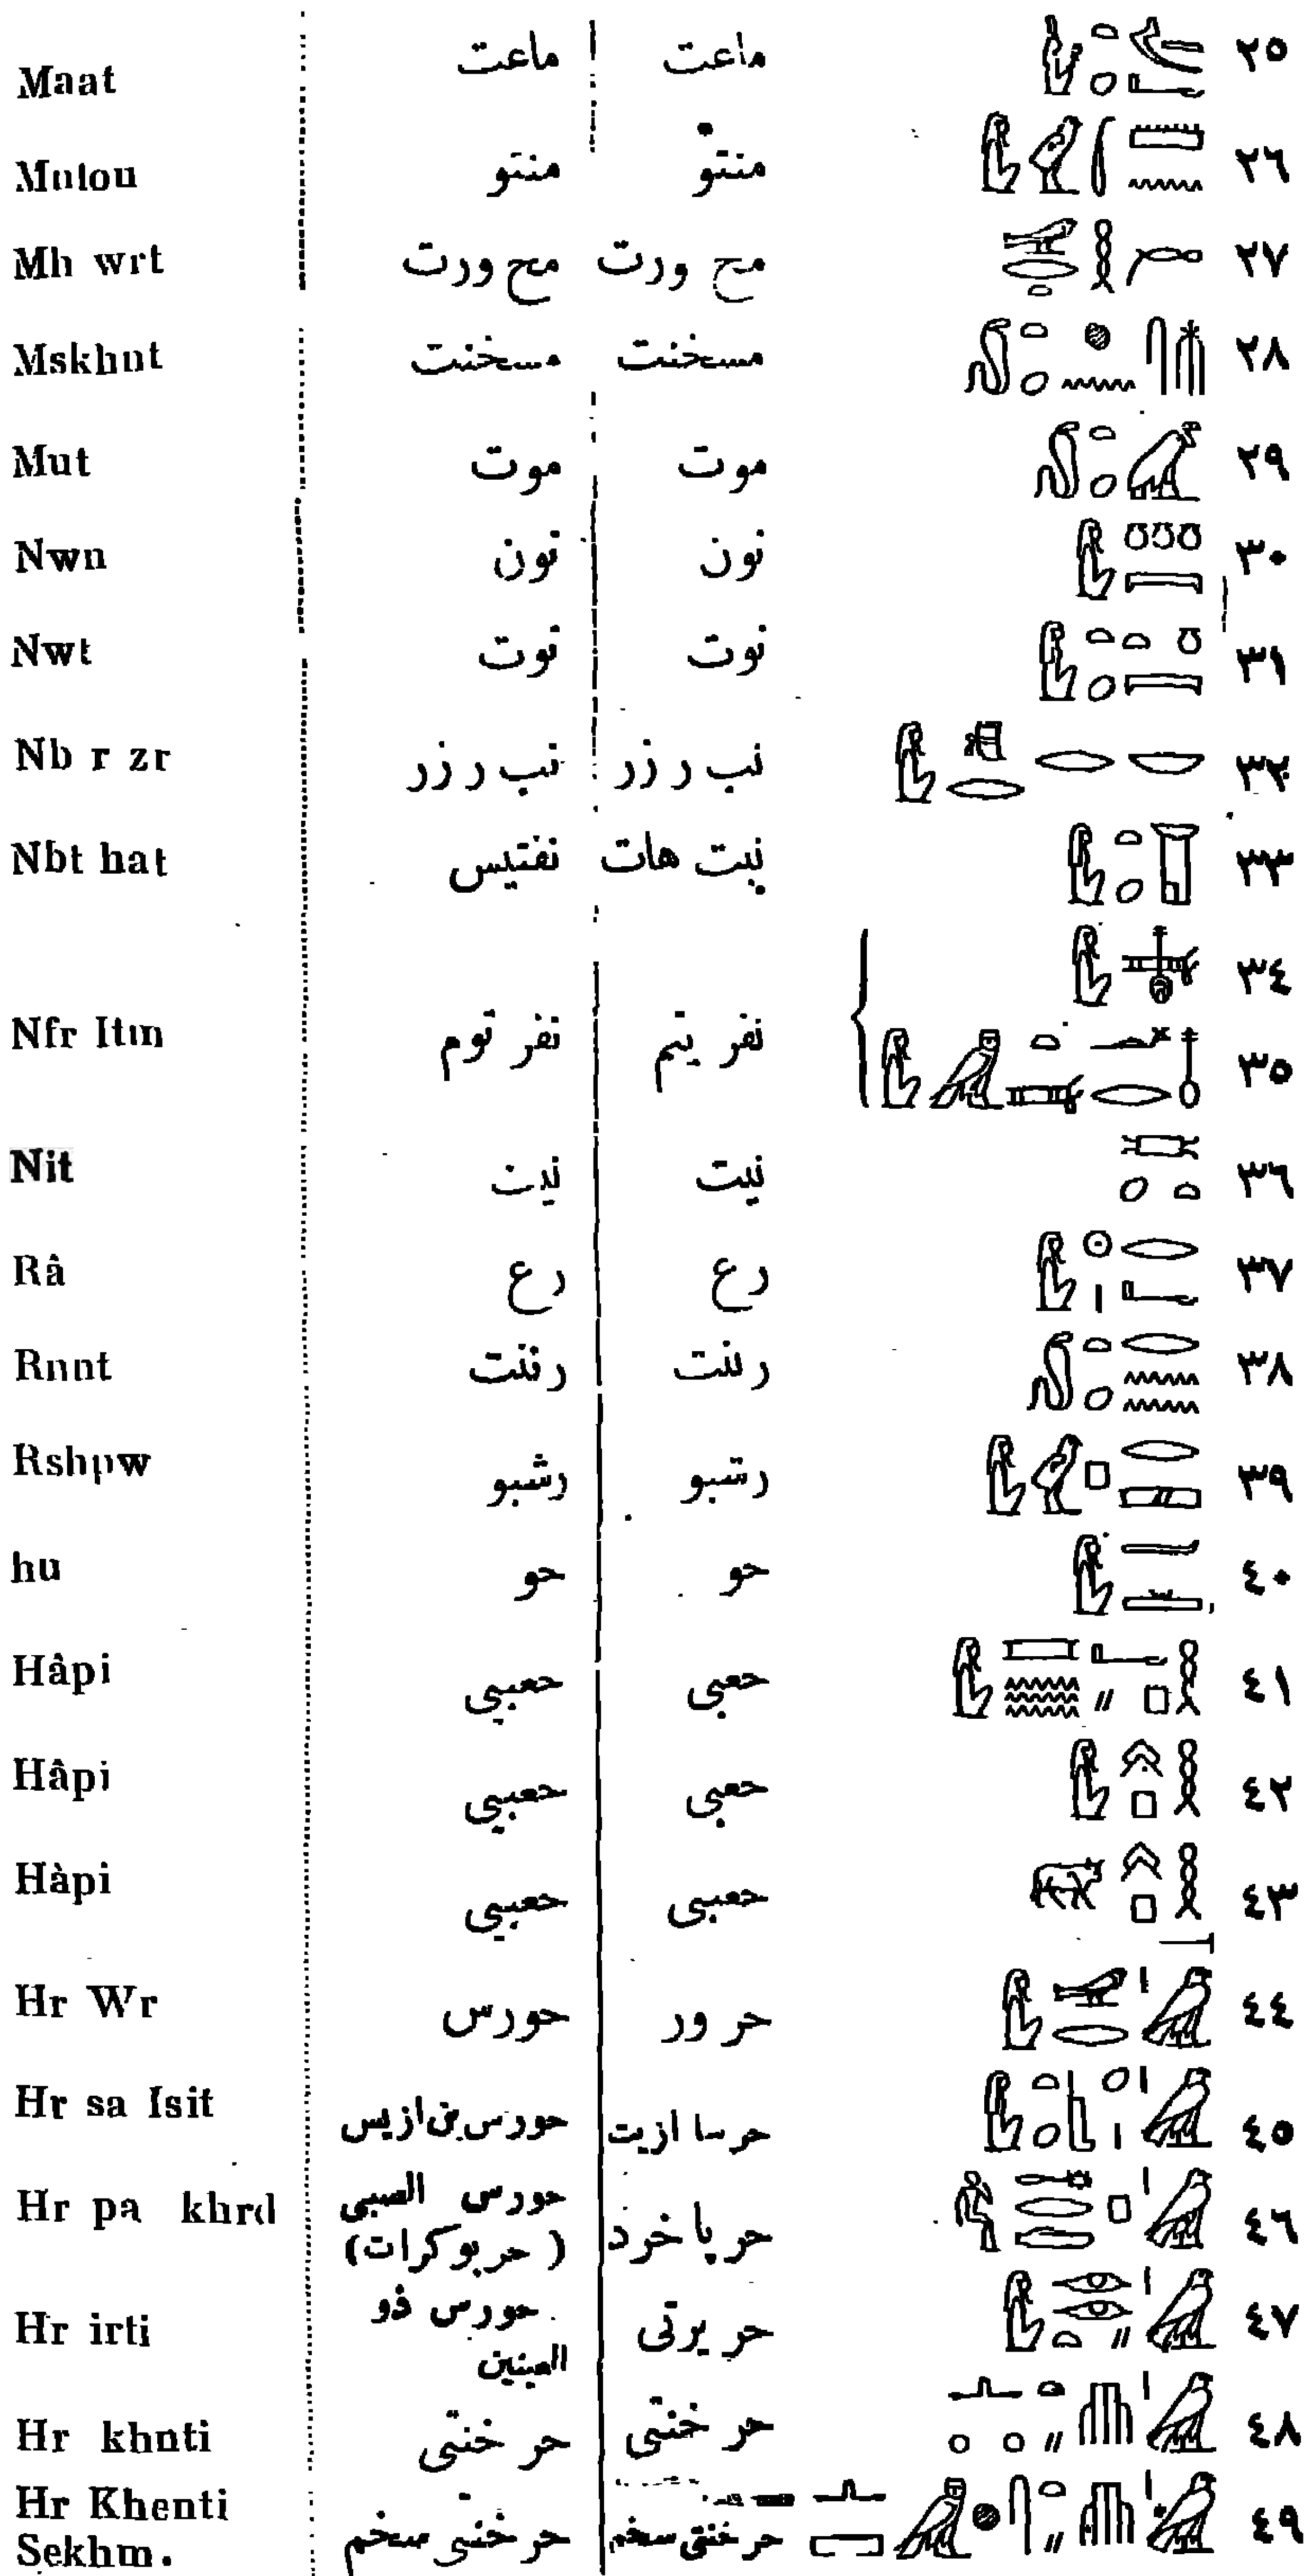 ٢٥ ماعت ماعت Maat
٢٦ منتو منتو Mntou
٢٧ مح ورت مح ورت Mh wrt
٢٨ مسخنت مسخنت Mskhnt
٢٩ موت موت Mut
٣٠ نون نون Nwn
٣١ نوت نوت Nwt
٣٢ نب ر زر نب ر زر Nb r zr
٣٣ نبت هات نفتيس Nbt hat
٣٤
٣٥ نفر يتم نفر توم Nfr Itm
٣٦ نيت نيت Nit
٣٧ رع رع Râ
٣٨ رننت رننت Rnnt
٣٩ رشبو رشبو Rshpw
٤٠ حو حو hu
٤١ حعبى حعبيى Hâpi
٤٢ حعبى حعبيى Hâpi
٤٣ حعبى حعبيى Hàpi
٤٤ حر ور حورس Hr Wr
٤٥ حر سا ازيت حورس بن ازيس Hr sa Isit
٤٦ حر پا خرد حورس الصبى Hr pa khrd
(حر بو كرات)
٤٧ حر يرتى حورس ذو Hr irti
العينين
٤٨ حر خنتى حر خنتى Hr khnti
٤٩ حر خنتى سخم حر خنتى سخم Hr Khenti
Sekhm.